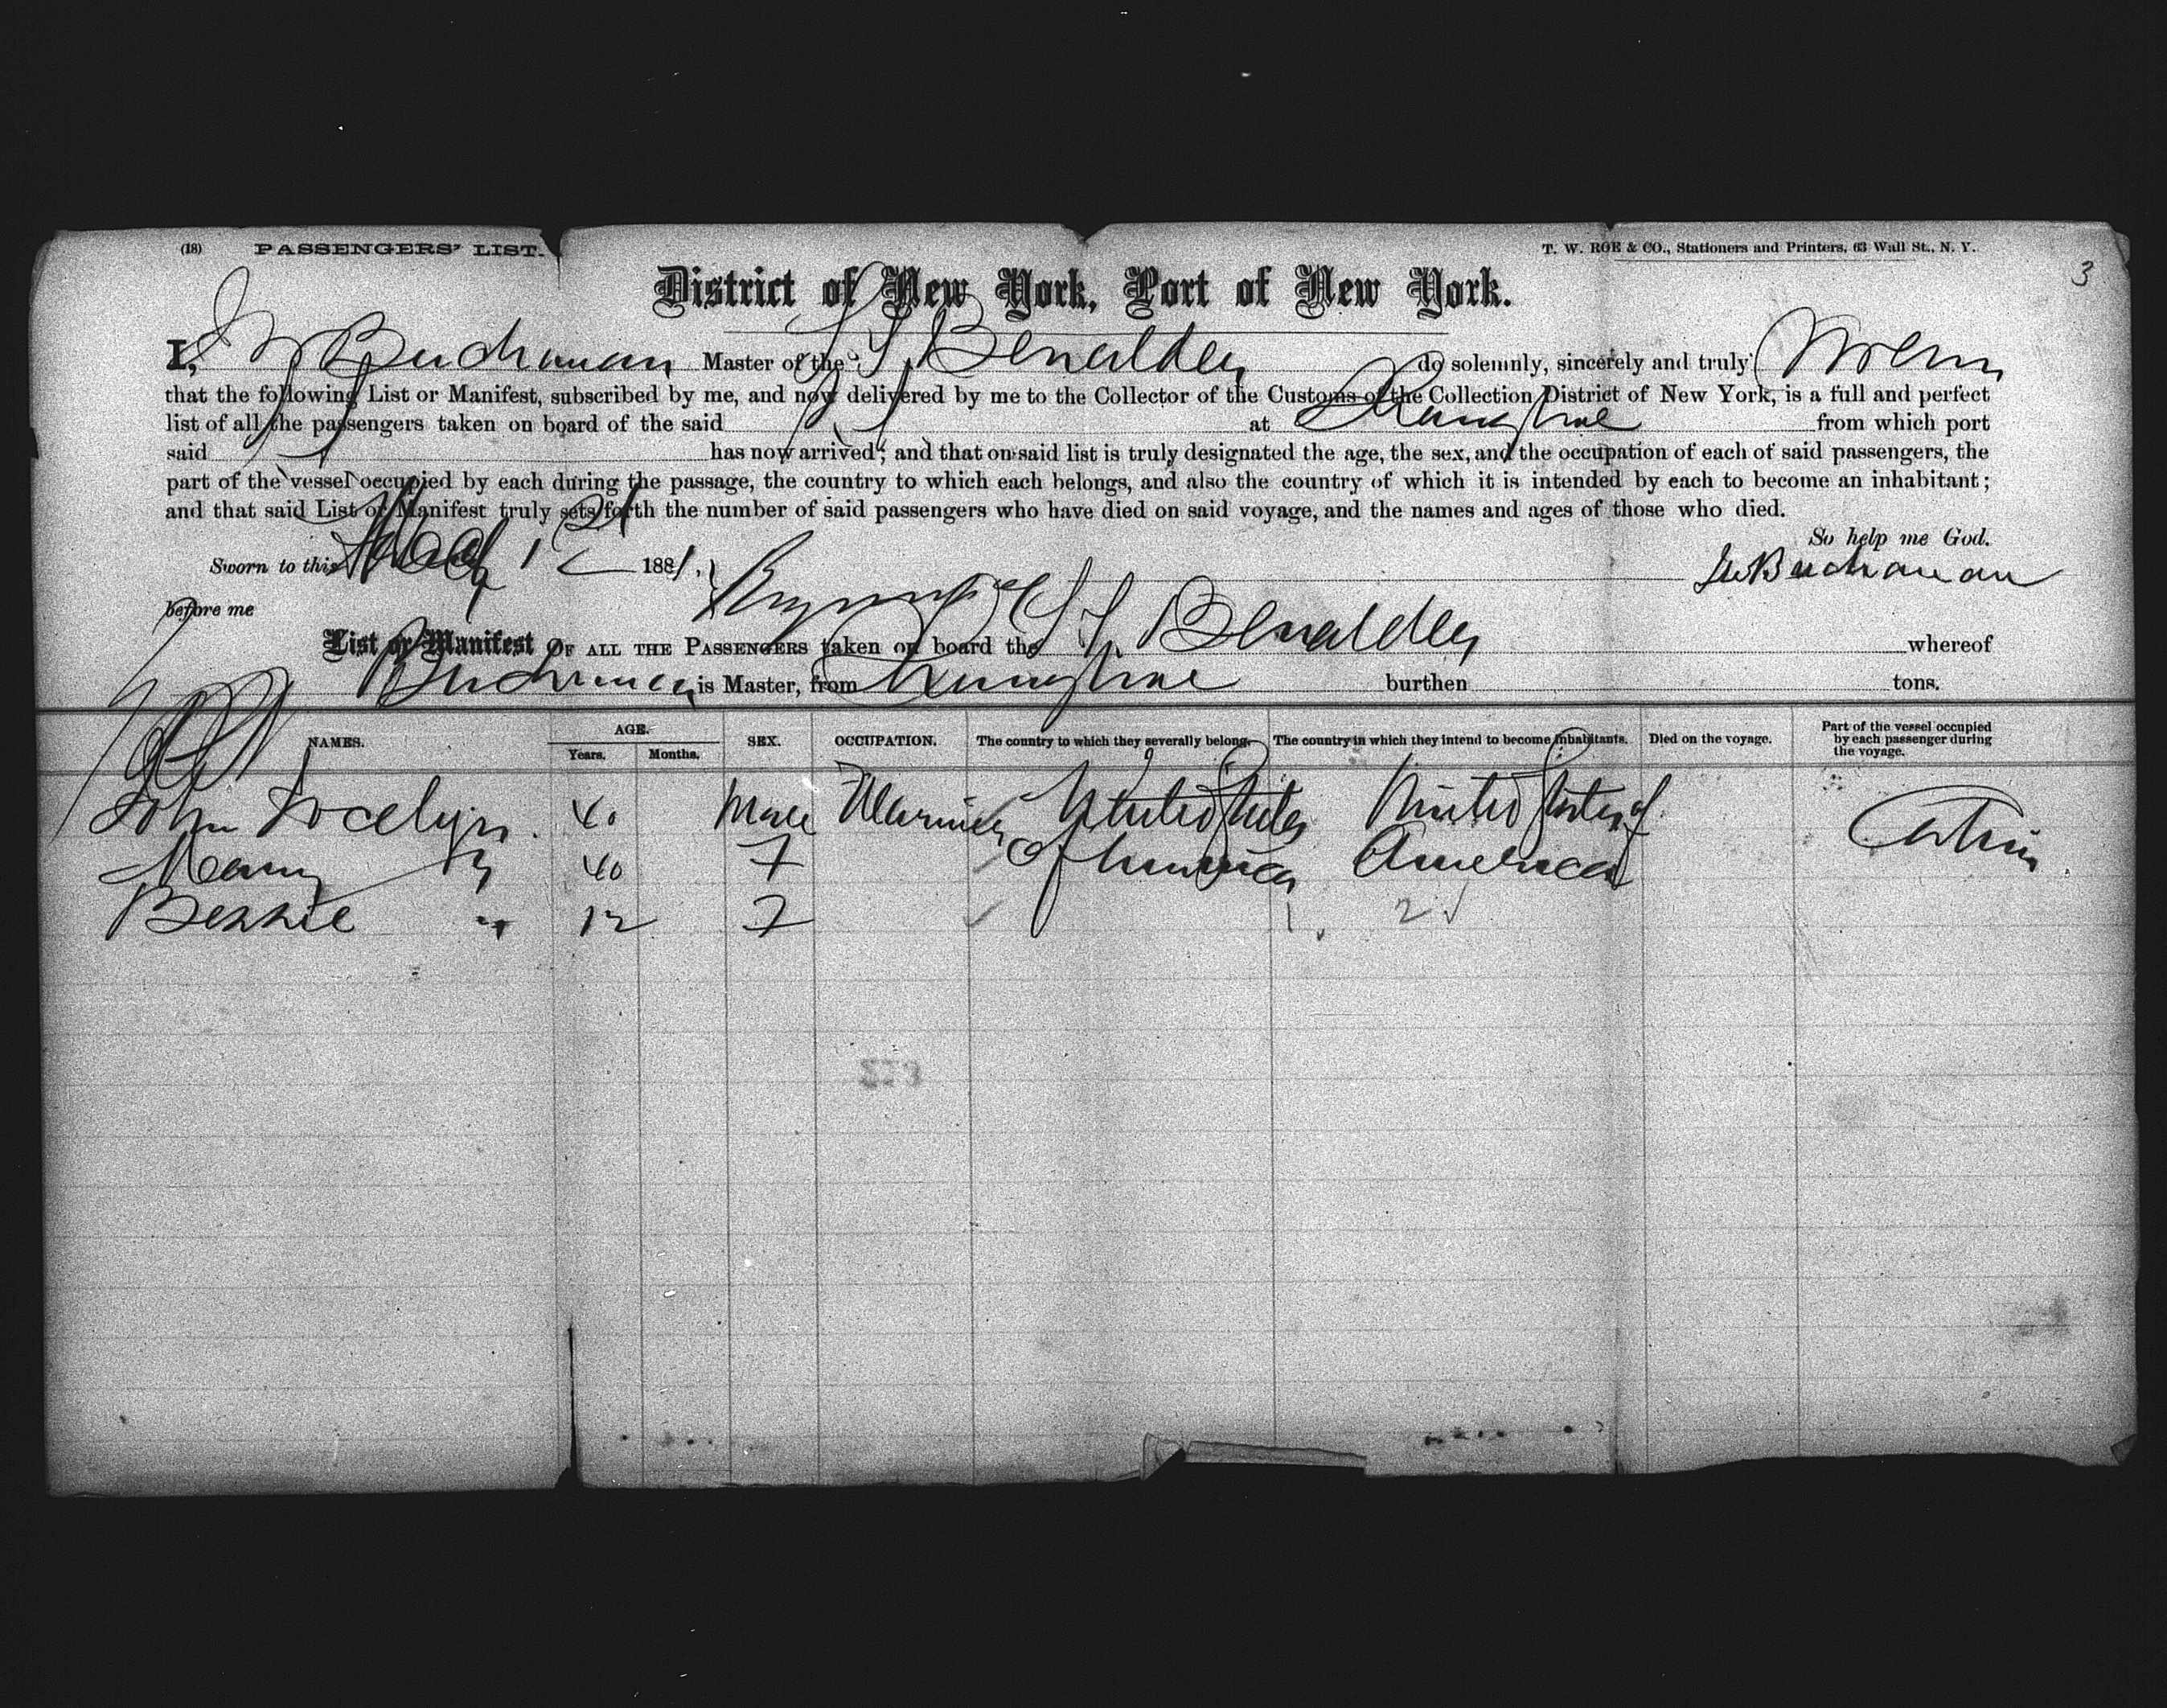 (18) PASSENGERS' LIST. T. W. ROE & CO., Stationers and Printers, 63 Wall St., N. Y.
3
District of New York, Port of New York.
I, Buchanan Master of the SS Benalder do solemnly, sincerely and truly
that the following List or Manifest, subscribed by me, and now delivered by me to the Collector of the Customs of the Collection District of New York, is a full and perfect
list of all the passengers taken on board of the said at from which port
said has now arrived; and that on said list is truly designated the age, the sex, and the occupation of each of said passengers, the
part of the vessel occupied by each during the passage, the country to which each belongs, and also the country of which it is intended by each to become an inhabitant;
and that said List or Manifest truly sets forth the number of said passengers who have died on said voyage, and the names and ages of those who died.
So help me God.
Sworn to this 1881. Buchanan
before me
List or Manifest OF ALL THE PASSENGERS taken on board the SS. Benalder whereof
Buchanan is Master, from burthen tons.
NAMES. AGE. Years. Months. SEX. OCCUPATION. The country to which they severally belong. The country in which they intend to become inhabitants. Died on the voyage. Part of the vessel occupied by each passenger during the voyage.
John Jocelyn. 40 Male Mariner United States United States of Cabin
Mary " 40 F of America America
Bessie " 12 F 2